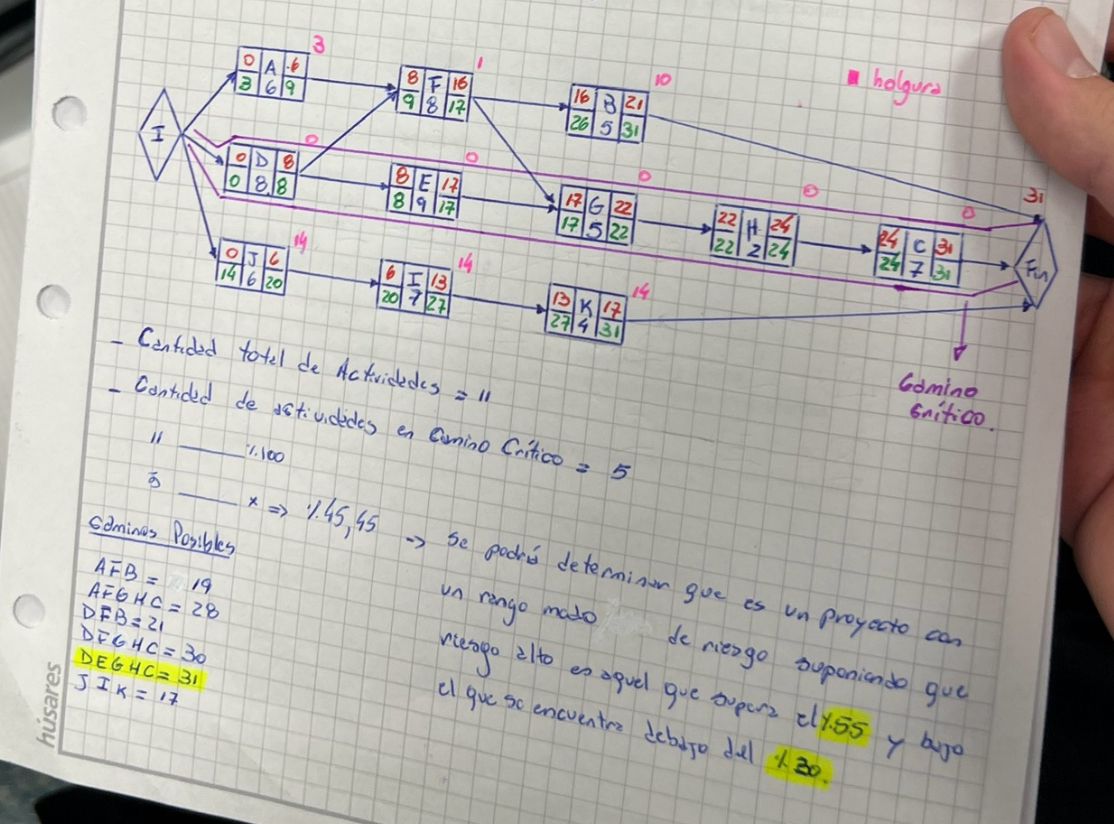 holgura
3
0 A 6
3 6 9
1
8 F 16
9 8 17
10
16 B 21
26 5 31
I
0
0 D 8
0 8 8
0
8 E 17
8 9 17
0
17 G 22
17 5 22
0
22 H 24
22 2 24
0
24 C 31
24 7 31
31
Fin
14
0 J 6
14 6 20
14
6 I 13
20 7 27
14
13 K 17
27 4 31
Camino
Crítico.
- Cantidad total de Actividades = 11
- Cantidad de actividades en Camino Crítico = 5
11 %100
5 x => %45,45 -> Se podría determinar que es un proyecto con
un rango medio de riesgo suponiendo que
riesgo alto es aquel que supera el %55 y bajo
el que se encuentra debajo del %30.
Caminos Posibles
AFB = 19
AFGHC = 28
DFB = 21
DFGHC = 30
DEGHC = 31
JIK = 17
húsares